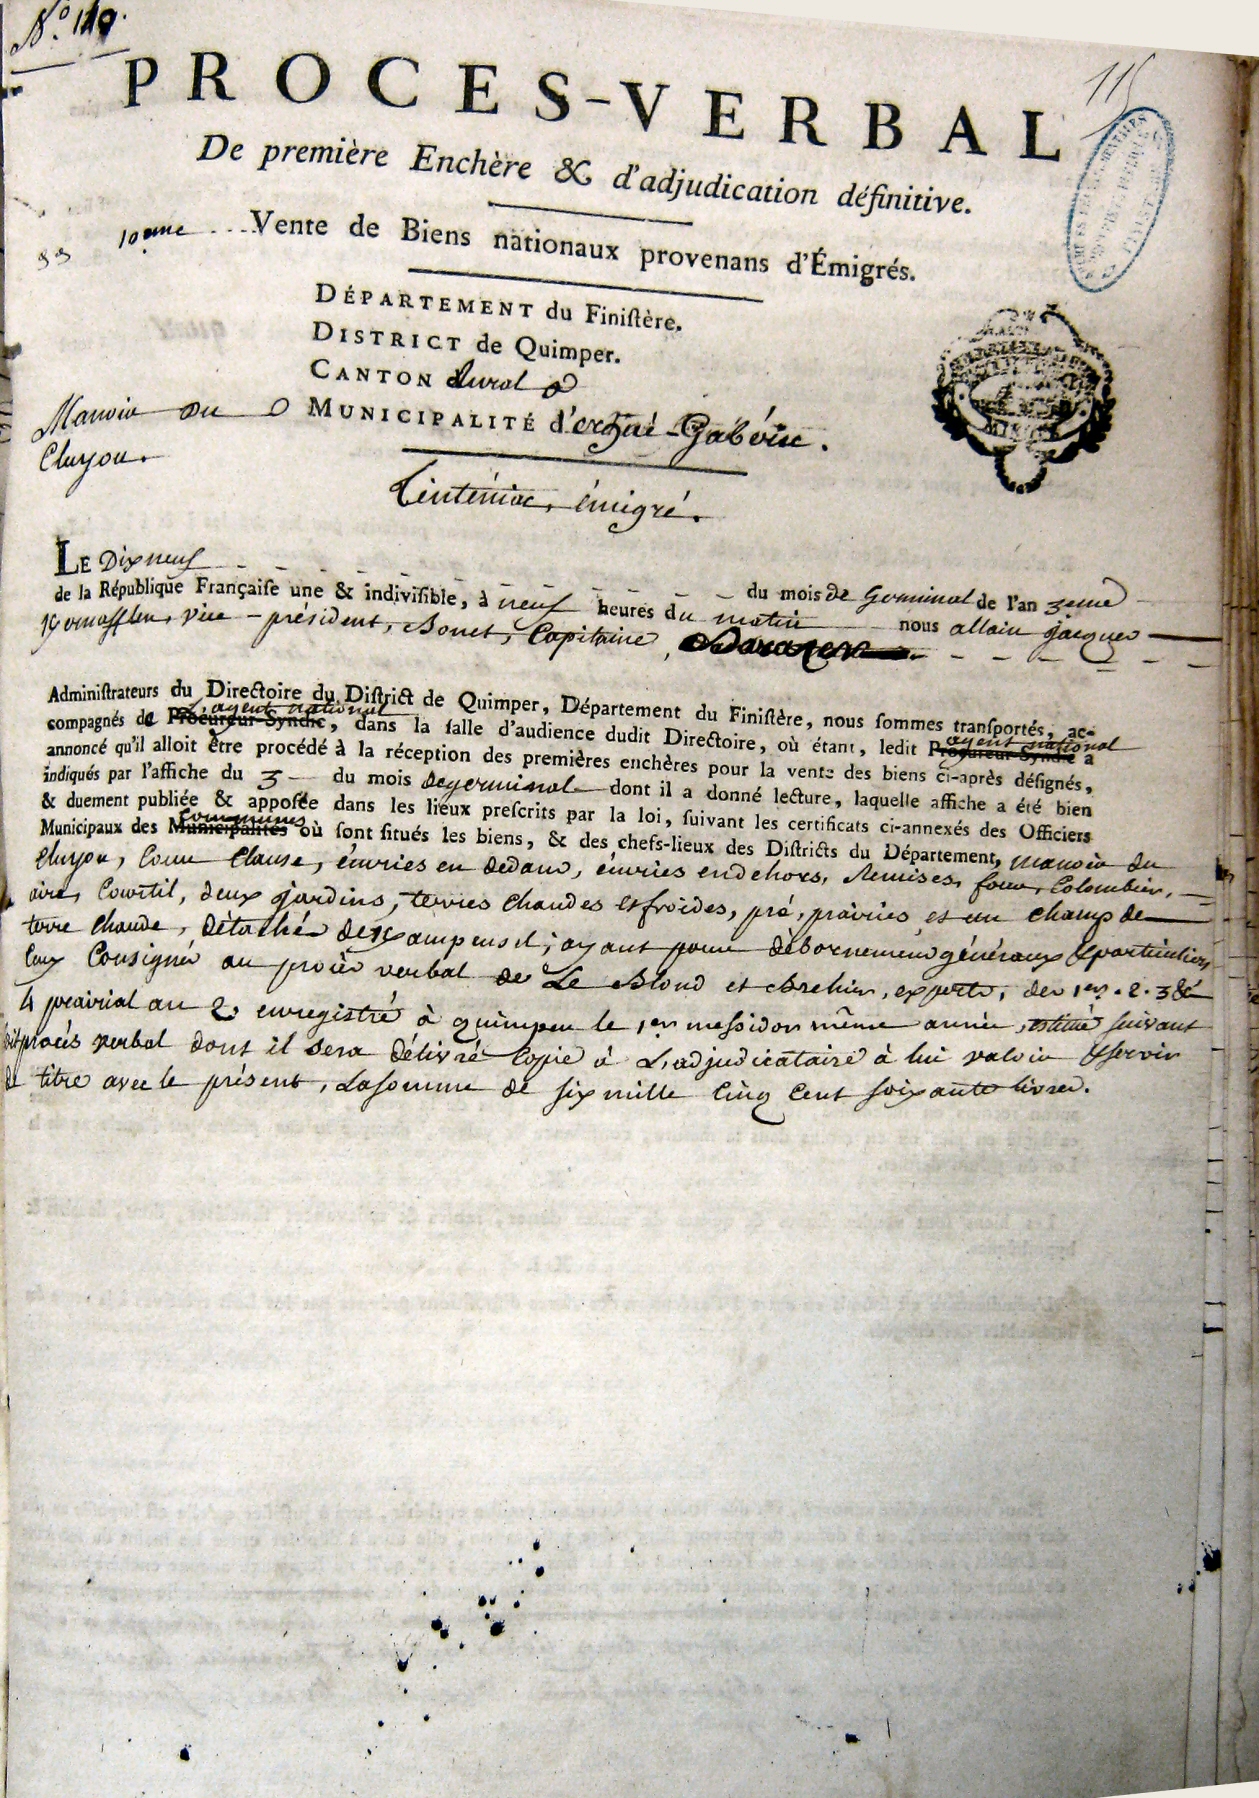 N.º 149.
115
PROCES-VERBAL
De première Enchère & d'adjudication définitive.
10eme Vente de Biens nationaux provenans d'Émigrés.
DÉPARTEMENT du Finistère.
DISTRICT de Quimper.
CANTON Rural
MUNICIPALITÉ d'ergué-Gabéric.
Manoir du
Cluyou.
Tinténiac, émigré.
LE Dix neuf du mois de Germinal de l'an 3eme
de la République Française une & indivisible, à neuf heures du matin nous allain jacques
vice-président, Bonet, Capitaine,
Administrateurs du Directoire du District de Quimper, Département du Finistère, nous sommes transportés, ac-
l'agent national
compagnés de Procureur-Syndic, dans la salle d'audience dudit Directoire, où étant, ledit Procureur-Syndic a
agent national
annoncé qu'il alloit être procédé à la réception des premières enchères pour la vente des biens ci-après désignés,
indiqués par l'affiche du 3 du mois de germinal dont il a donné lecture, laquelle affiche a été bien
& duement publiée & apposée dans les lieux prescrits par la loi, suivant les certificats ci-annexés des Officiers
communes
Municipaux des Municipalités où sont situés les biens, & des chefs-lieux des Districts du Département, manoir du
Cluyou, Cour Clause, écuries en dedans, écuries en dehors, Remises, four, Colombier,
aire, Courtil, deux jardins, terres chaudes et froides, pré, prairies et un champ de
terre chaude, détaché de ; ayant pour débornement généraux & particuliers
Ceux Consignés au procès verbal de Le Blond et Brehier, experts, des 1er. 2. 3 &
4 prairial an 2 enregistré à quimper le 1er messidor même année, estimé suivant
procès verbal dont il sera délivré Copie à L'adjudicataire à lui valoir & servir
de titre avec le présent, La somme de six mille Cinq Cent soixante livres.